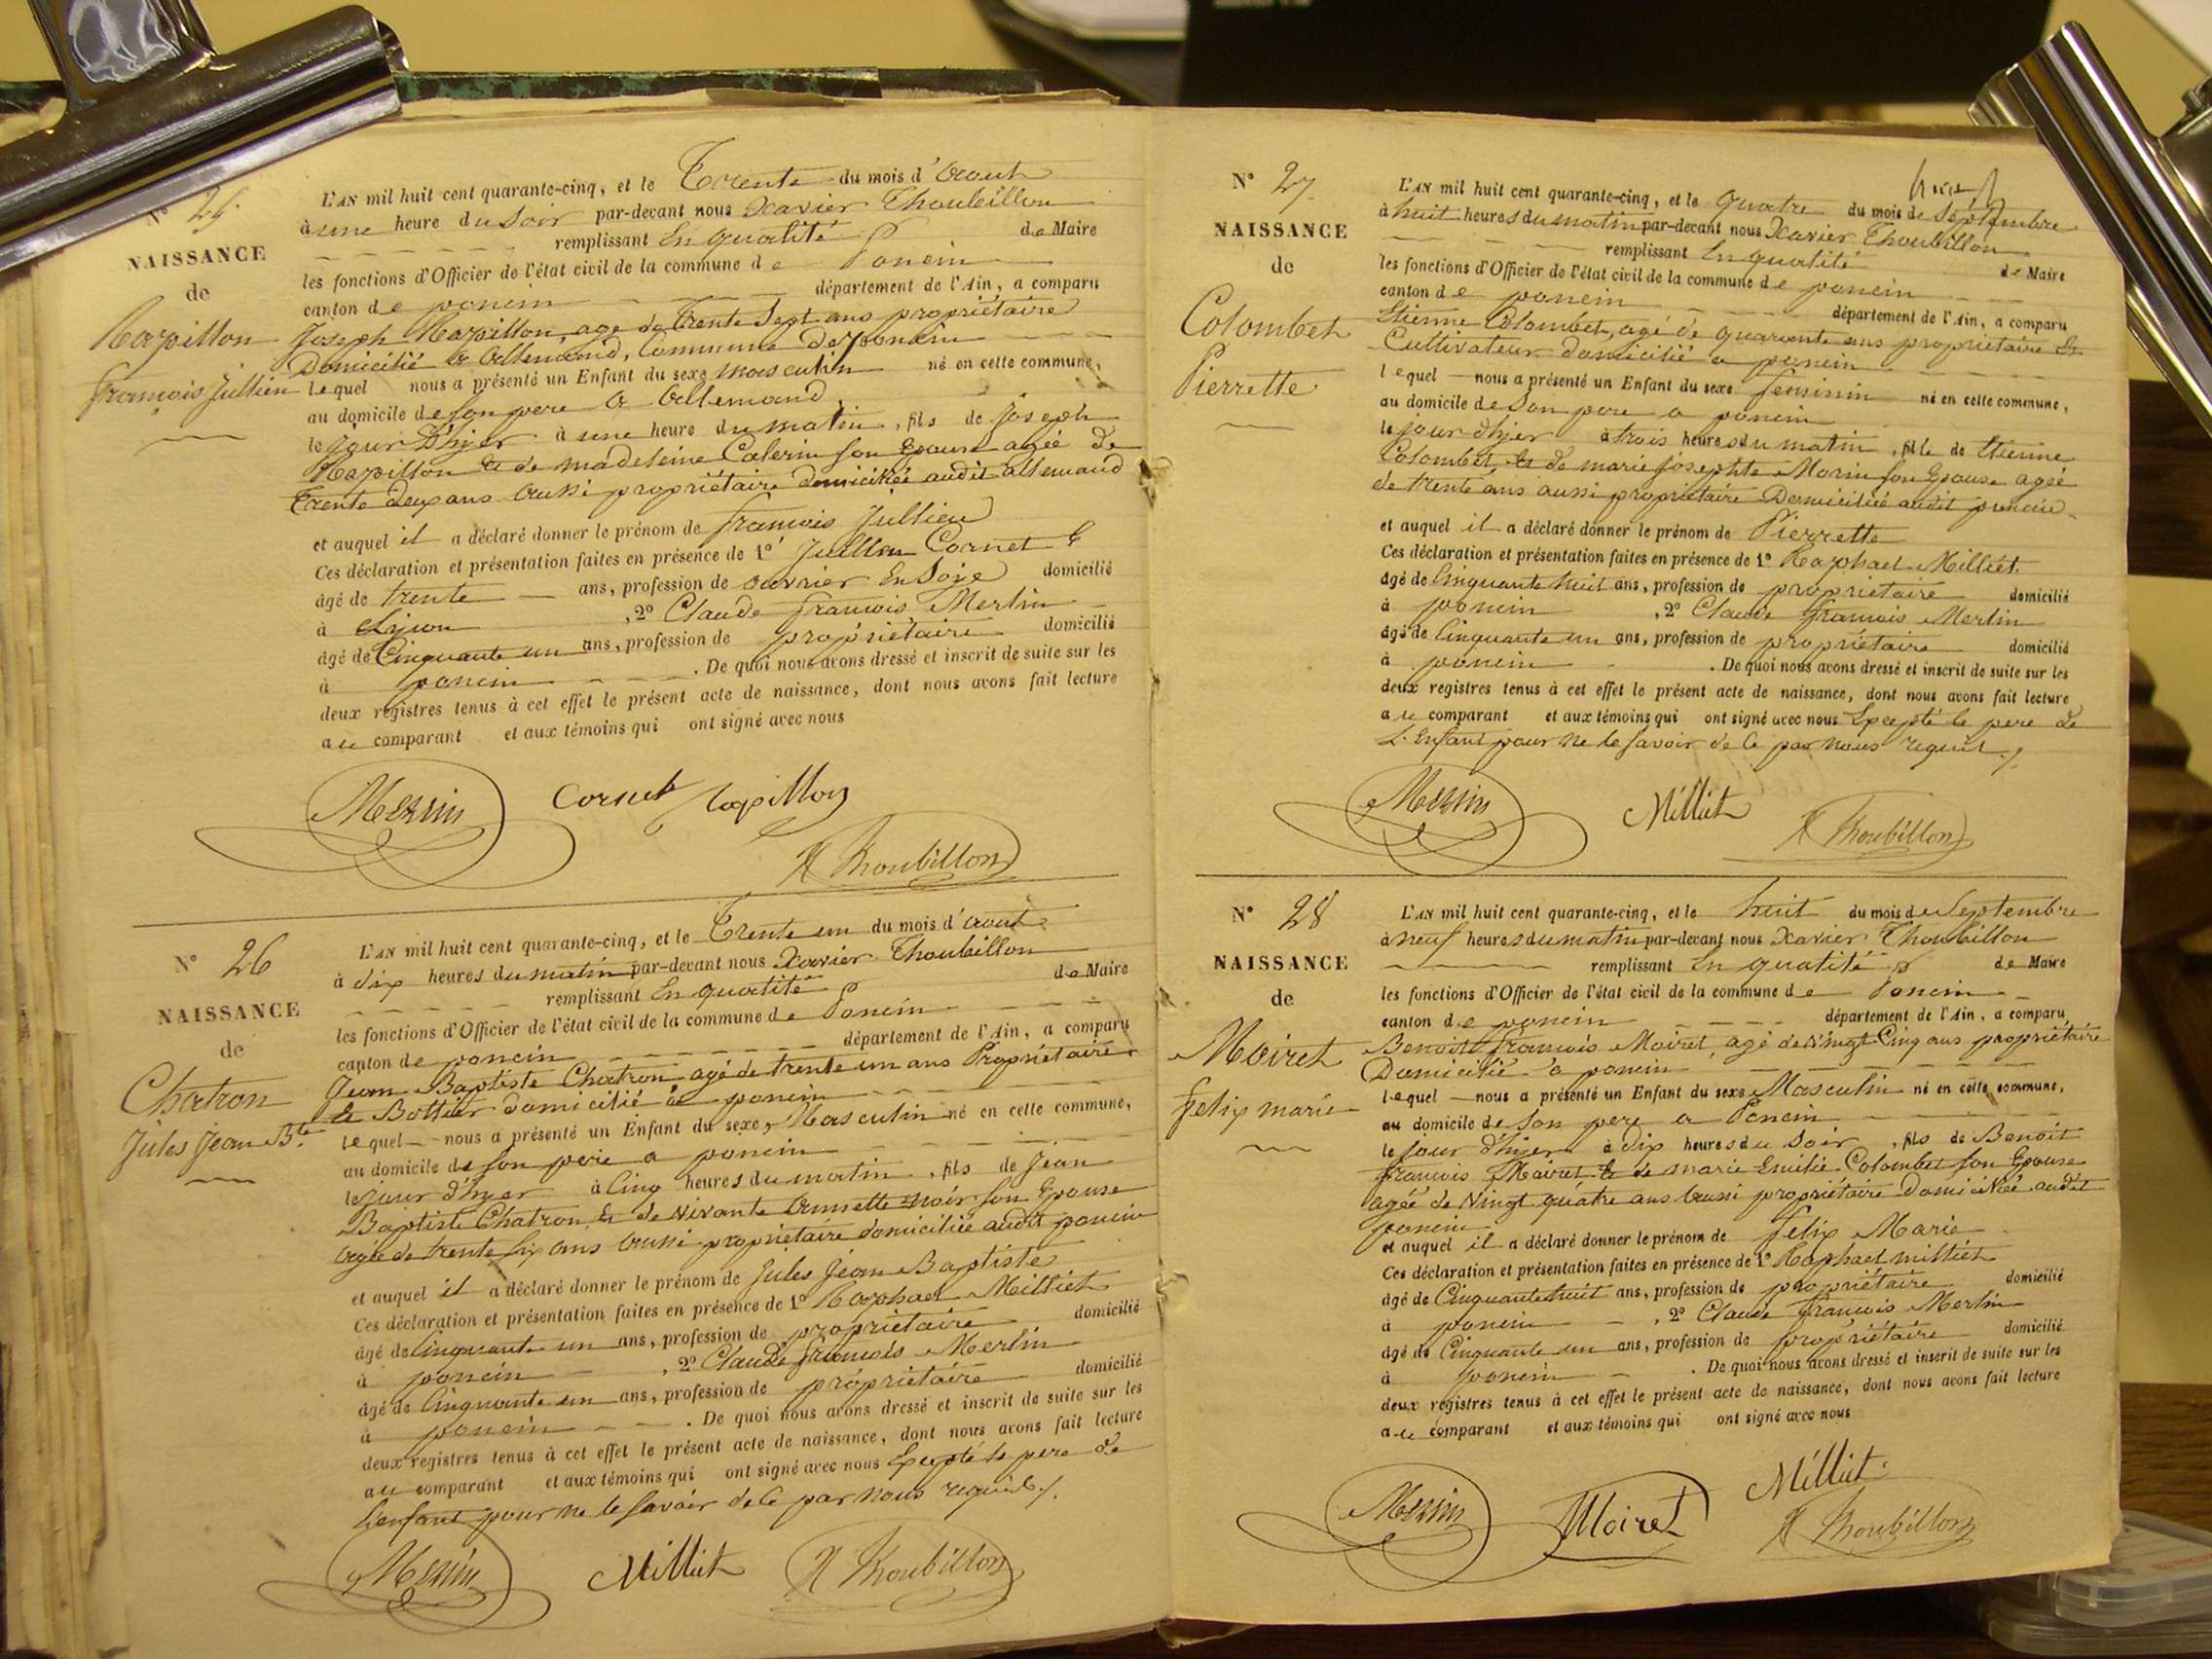 N° 25.
NAISSANCE
de
Rapillon
françois Jullien
L'AN mil huit cent quarante-cinq, et le Trente du mois d'Aout
à une heure du Soir par-devant nous Xavier Thoubillon
remplissant En qualité de Maire
les fonctions d'Officier de l'état civil de la commune de Poncin
canton de poncin département de l'Ain, a comparu
Joseph Rapillon, age de Trente Sept ans propriétaire
Domicilié a Allemand, Commune De poncin
lequel nous a présenté un Enfant du sexe masculin né en cette commune,
au domicile de son pere a Allemand,
le jour D'hyer à une heure du matin, fils de Joseph
Rapillon Et de madeleine Calerin son Epouse agée de
Trente Deux ans Aussi propriétaire domiciliée audit allemand
et auquel il a déclaré donner le prénom de françois Jullien
Ces déclaration et présentation faites en présence de 1° Jullien Cornet
âgé de trente ans, profession de ouvrier En Soie domicilié
à Lyon, 2° Claude françois Merlin
âgé de Cinquante un ans, profession de propriétaire domicilié
à poncin. De quoi nous avons dressé et inscrit de suite sur les
deux registres tenus à cet effet le présent acte de naissance, dont nous avons fait lecture
au comparant et aux témoins qui ont signé avec nous
Merlin Cornet Rapillon
X Thoubillon
N° 26
NAISSANCE
de
Chatron
Jules Jean Bte.
L'AN mil huit cent quarante-cinq, et le Trente un du mois d'Aout
à dix heures du matin par-devant nous Xavier Thoubillon
remplissant En qualité de Maire
les fonctions d'Officier de l'état civil de la commune de Poncin
canton de poncin département de l'Ain, a comparu
Jean Baptiste Chatron agé de trente un ans Propriétaire
Et Bottier domicilié a poncin
lequel nous a présenté un Enfant du sexe Masculin né en cette commune,
au domicile de son pere a poncin
le jour d'hyer à Cinq heures du matin, fils de Jean
Baptiste Chatron, Et de son Epouse
Agée de trente six ans Aussi propriétaire domiciliée audit poncin
et auquel il a déclaré donner le prénom de Jules Jean Baptiste
Ces déclaration et présentation faites en présence de 1° Raphael Milliet
âgé de Cinquante un ans, profession de propriétaire domicilié
à poncin, 2° Claude françois Merlin
âgé de Cinquante un ans, profession de propriétaire domicilié
à poncin. De quoi nous avons dressé et inscrit de suite sur les
deux registres tenus à cet effet le présent acte de naissance, dont nous avons fait lecture
au comparant et aux témoins qui ont signé avec nous Excepté le pere de
L'enfant pour ne le savoir de ce par nous requis./.
Merlin Milliet X Thoubillon
N° 27
NAISSANCE
de
Colombet
Pierrette
L'AN mil huit cent quarante-cinq, et le quatre du mois de Septembre
à huit heures du matin par-devant nous Xavier Thoubillon
remplissant En qualité de Maire
les fonctions d'Officier de l'état civil de la commune de poncin
canton de poncin département de l'Ain, a comparu
Etienne Colombet, agé de quarante ans propriétaire Et
Cultivateur domicilié a poncin
lequel nous a présenté un Enfant du sexe feminin né en cette commune,
au domicile de Son pere a poncin
le jour d'hyer à trois heures du matin, fille de Etienne
Colombet, Et de marie Josephte Morin son Epouse agée
de trente ans aussi propriétaire Domiciliée audit poncin
et auquel il a déclaré donner le prénom de Pierrette
Ces déclaration et présentation faites en présence de 1° Raphael Milliet
âgé de Cinquante huit ans, profession de propriétaire domicilié
à poncin, 2° Claude françois Merlin
âgé de Cinquante un ans, profession de propriétaire domicilié
à poncin. De quoi nous avons dressé et inscrit de suite sur les
deux registres tenus à cet effet le présent acte de naissance, dont nous avons fait lecture
au comparant et aux témoins qui ont signé avec nous Excepté le pere de
L'Enfant pour ne le savoir de ce par nous requis./
Merlin Milliet
X Thoubillon
N° 28
NAISSANCE
de
Moiret
felix marie
L'AN mil huit cent quarante-cinq, et le huit du mois de Septembre
à neuf heures du matin par-devant nous Xavier Thoubillon
remplissant En qualité de Maire
les fonctions d'Officier de l'état civil de la commune de Poncin
canton de poncin département de l'Ain, a comparu
Benoit françois Moiret, agé de vingt Cinq ans propriétaire
Domicilié a poncin
lequel nous a présenté un Enfant du sexe Masculin né en cette commune,
au domicile de Son pere a Poncin
le jour d'hyer à dix heures du Soir, fils de Benoit
françois Moiret, Et de marie Emilie Colombet son Epouse
agée de Vingt quatre ans Aussi propriétaire Domiciliée audit
poncin
et auquel il a déclaré donner le prénom de felix Marie
Ces déclaration et présentation faites en présence de 1° Raphael milliet
âgé de Cinquante huit ans, profession de propriétaire domicilié
à poncin, 2° Claude françois Merlin
âgé de Cinquante un ans, profession de propriétaire domicilié
à poncin. De quoi nous avons dressé et inscrit de suite sur les
deux registres tenus à cet effet le présent acte de naissance, dont nous avons fait lecture
au comparant et aux témoins qui ont signé avec nous
Merlin Moiret Milliet
X Thoubillon